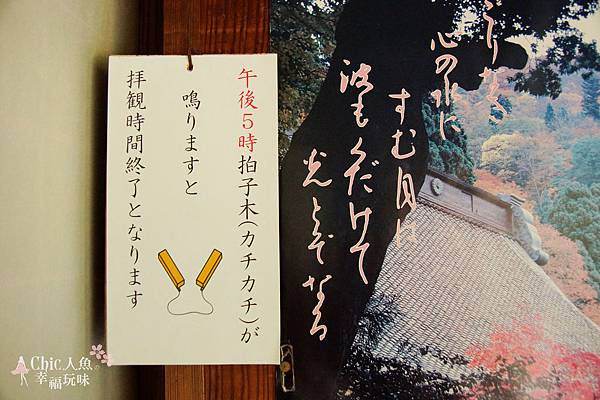 午後5時拍子木(カチカチ)が
鳴りますと
拝観時間終了となります
にごりなき
心の水に
すむ月は
波もくだけて
光とぞなる
Chic人魚
幸福玩味